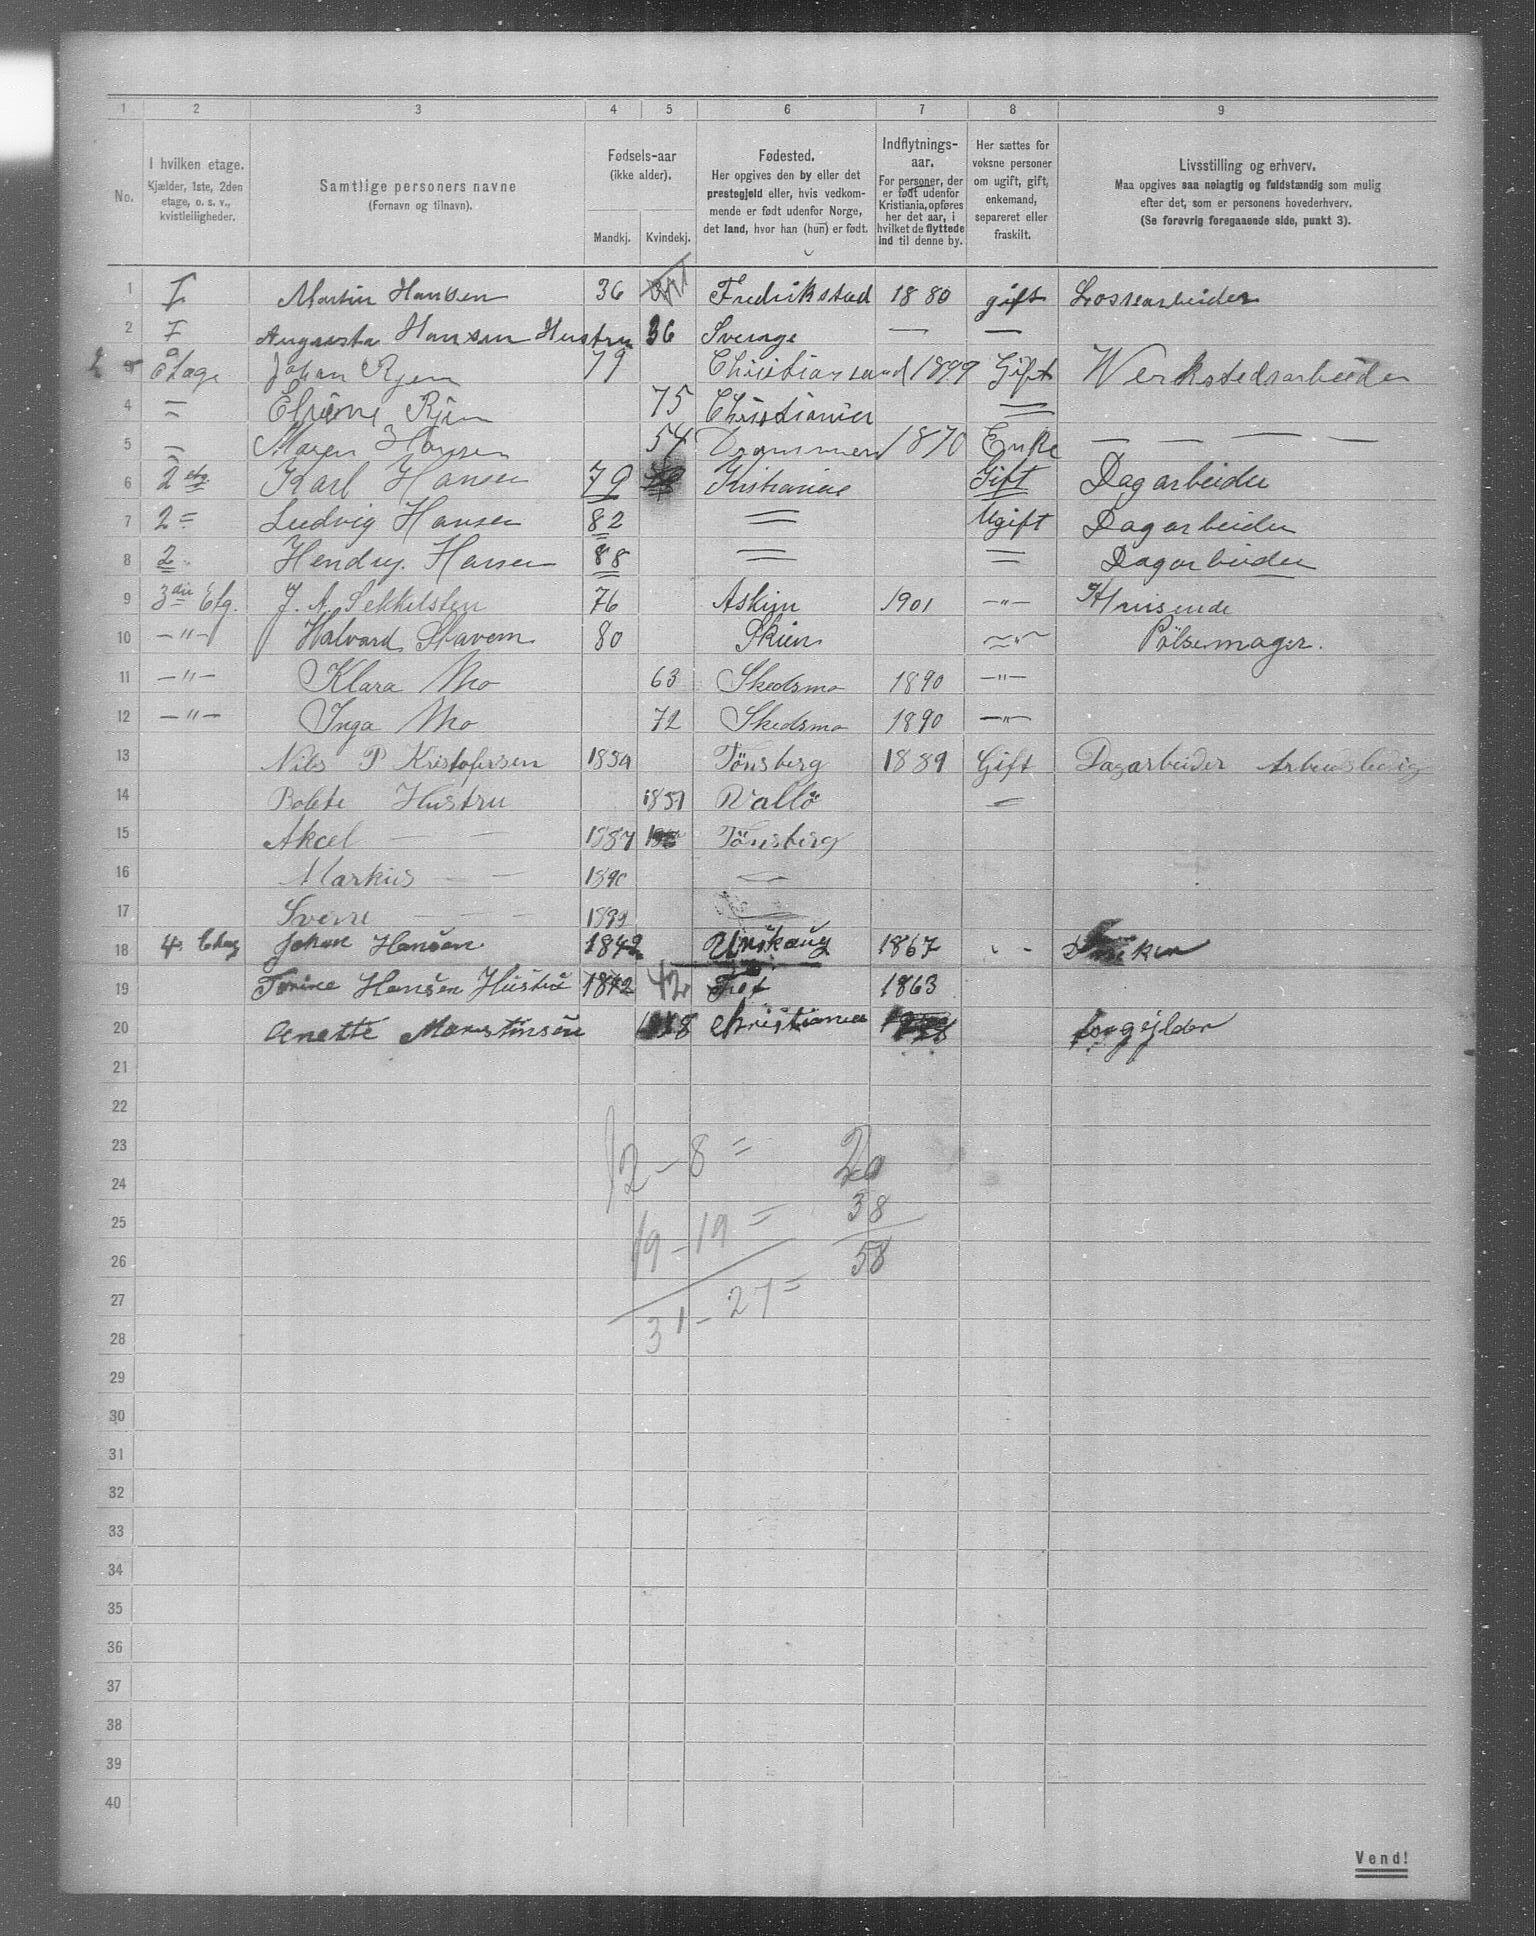 1 2 3 4 5 6 7 8 9
No.
I hvilken etage.
Kjælder, 1ste, 2den
etage, o. s. v.,
kvistleiligheder.
Samtlige personers navne
(Fornavn og tilnavn).
Fødsels-aar
(ikke alder).
Mandkj. Kvindekj.
Fødested.
Her opgives den by eller det
prestegjeld eller, hvis vedkom-
mende er født udenfor Norge,
det land, hvor han (hun) er født.
Indflytnings-
aar.
For personer, der
er født udenfor
Kristiania, opføres
her det aar, i
hvilket de flyttede
ind til denne by.
Her sættes for
voksne personer
om ugift, gift,
enkemand,
separeret eller
fraskilt.
Livsstilling og erhverv.
Maa opgives saa nøiagtig og fuldstændig som mulig
efter det, som er personens hovederhverv.
(Se forøvrig foregaaende side, punkt 3).
1 I Martin Hansen 36 Fredrikstad 1880 gift Lossearbeider
2 I Augusta Hansen Hustru 36 Sverige — —
3 2 Etage Johan Rjen 79 Christiansand 1899 Gift Werkstedsarbeider
4 = Rjen 75 Christiania =
5 = Maren Hansen 54 Drammen 1870 Enke — — — —
6 2 etg. Karl Hansen 79 Kristiania Gift Dagarbeider
7 2 = Ludvig Hansen 82 = Ugift Dagarbeider
8 2 „ Hendry. Hansen 88 = = Dagarbeider
9 3die Etg. J. A. Sekkelsten 76 Askim 1901 —"— Hvisende
10 —"— Halvard Stavern 80 Skien —"— Pølsemager.
11 —"— Klara Mo 63 Skedsmo 1890 —"—
12 —"— Inga Mo 72 Skedsmo 1890 —"—
13 Nils P Kristofersen 1854 Tönsberg 1889 Gift Dagarbeider Arbeidsledig
14 Bolete Hustru 1851 Vallö —
15 Akcel — — 1887 Tönsberg
16 Markus — — 1890 —
17 Sverre — — — 1899 —
18 4 Etag Johan Hansen 1842 Urskaug 1867 „ -
19 Torine Hansen Hustru 1842 42 Tret 1863
20 Anette Marstinsen Christiania forgylder
21
22
23
12 – 8 = 20
24
25
19 – 19 = 38
26
58
27
31 – 27 =
28
29
30
31
32
33
34
35
36
37
38
39
40
Vend!